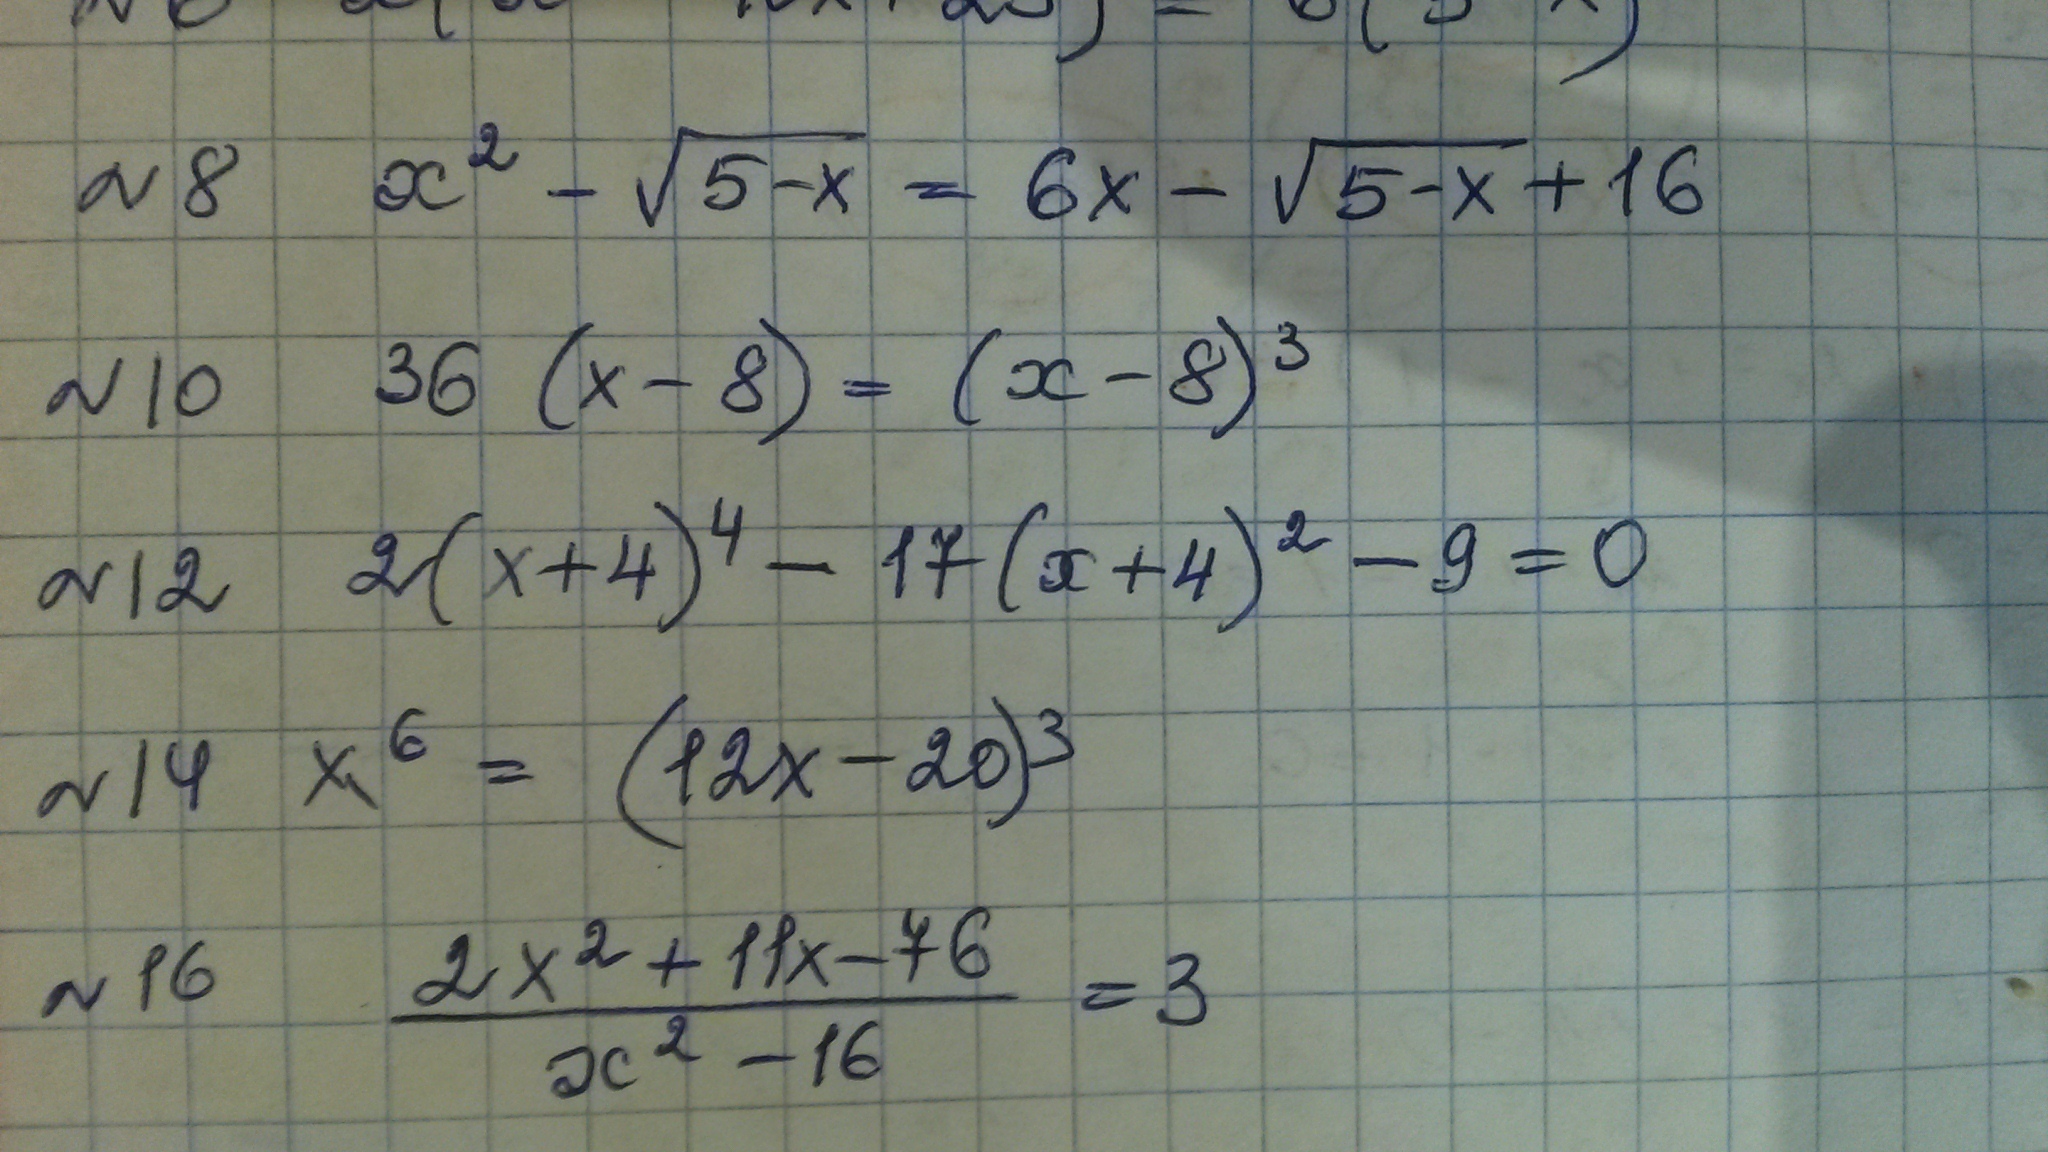 №8 x² - √(5-x) = 6x - √(5-x) + 16
№10 36 (x-8) = (x-8)³
№12 2(x+4)⁴ - 17(x+4)² - 9 = 0
№14 x⁶ = (12x-20)³
№16 (2x² + 11x - 76)/(x² - 16) = 3